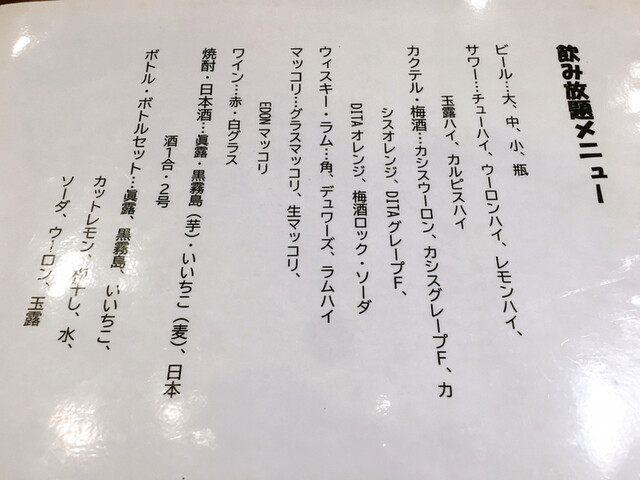 飲み放題メニュー
ビール…大、中、小、瓶
サワー…チューハイ、ウーロンハイ、レモンハイ、
玉露ハイ、カルピスハイ
カクテル・梅酒…カシスウーロン、カシスグレープF、カ
シスオレンジ、DITAグレープF、
DITAオレンジ、梅酒ロック・ソーダ
ウィスキー・ラム…角、デュワーズ、ラムハイ
マッコリ…グラスマッコリ、生マッコリ、
EDONマッコリ
ワイン…赤・白グラス
焼酎・日本酒…眞露・黒霧島（芋）・いいちこ（麦）、日本
酒1合・2号
ボトル・ボトルセット…眞露、黒霧島、いいちこ、
カットレモン、梅干し、水、
ソーダ、ウーロン、玉露